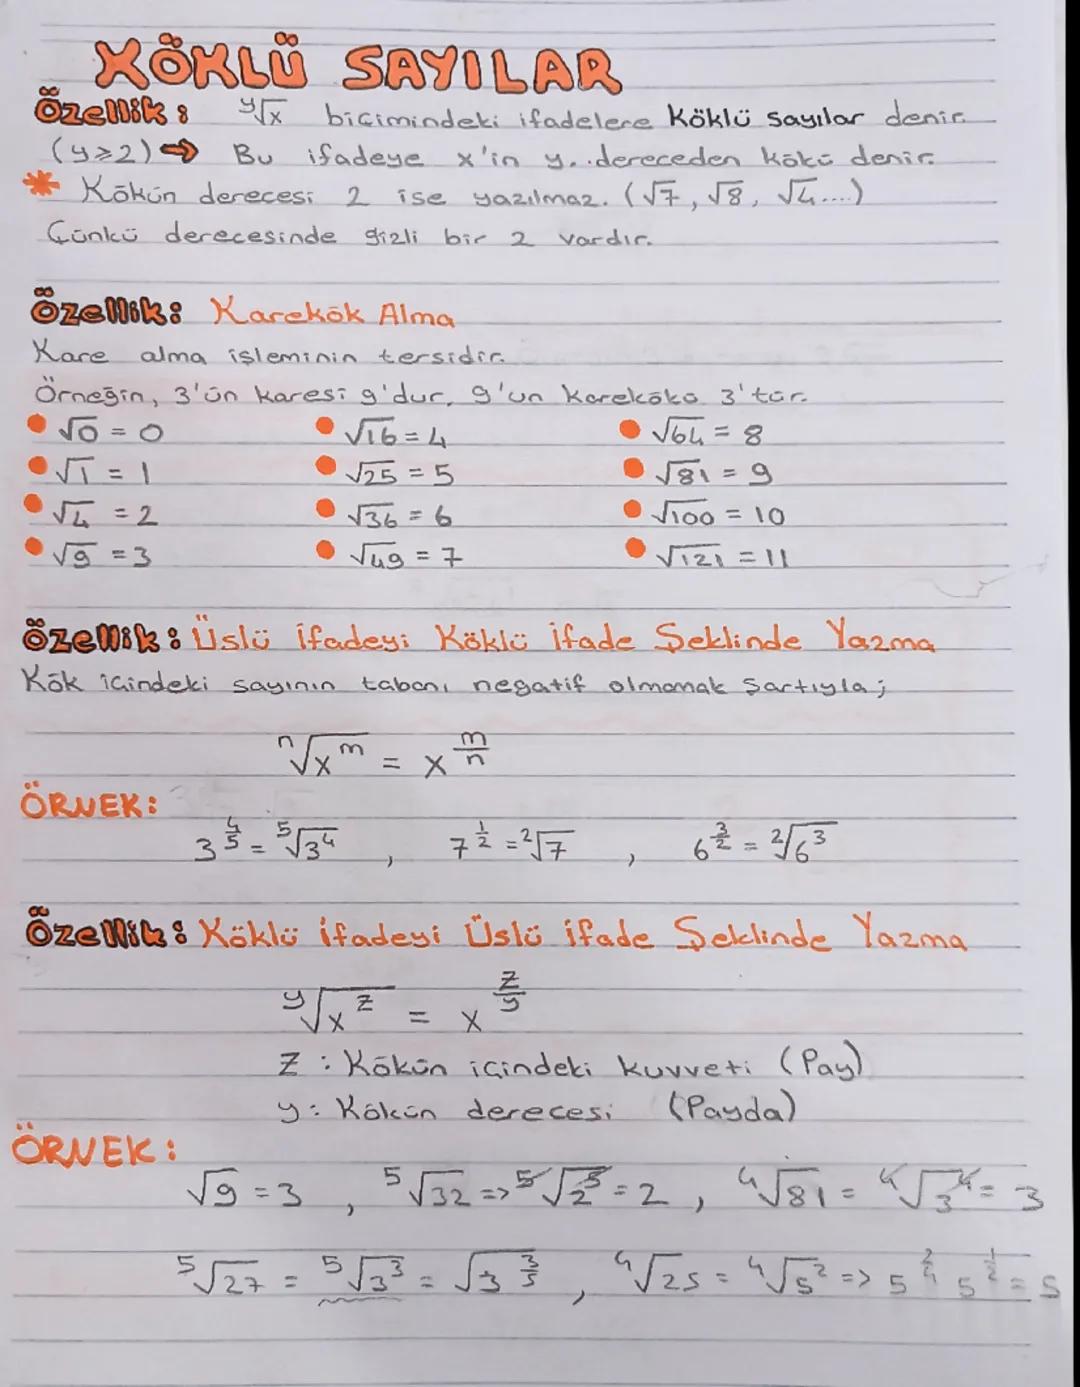 KÖKLÜ SAYILAR
Özellik: ʸ√x biçimindeki ifadelere Köklü sayılar denir.
(y≥2) ⇒ Bu ifadeye x'in y. dereceden kökü denir.
* Kökün derecesi 2 ise yazılmaz. (√7, √8, √4....)
Çünkü derecesinde gizli bir 2 vardır.
Özellik: Karekök Alma
Kare alma işleminin tersidir.
Örneğin, 3'ün karesi 9'dur, 9'un karekökü 3'tür.
√0 = 0 √16 = 4 √64 = 8
√1 = 1 √25 = 5 √81 = 9
√4 = 2 √36 = 6 √100 = 10
√9 = 3 √49 = 7 √121 = 11
Özellik: Üslü İfadeyi Köklü İfade Şeklinde Yazma
Kök içindeki sayının tabanı negatif olmamak şartıyla;
ⁿ√x^m = x^(m/n)
ÖRNEK:
3^(4/5) = ⁵√3⁴ , 7^(1/2) = ²√7 , 6^(3/2) = ²√6³
Özellik: Köklü İfadeyi Üslü İfade Şeklinde Yazma
ʸ√x^z = x^(z/y)
z : Kökün içindeki kuvveti (Pay)
y : Kökün derecesi (Payda)
ÖRNEK:
√9 = 3 , ⁵√32 => ⁵√2⁵ = 2 , ⁴√81 = ⁴√3⁴ = 3
⁵√27 = ⁵√3³ = √3^(3/5) , ⁴√25 = ⁴√5² => 5^(2/4) 5^(1/2) = 5